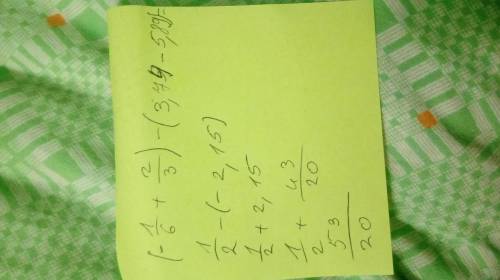 (-1/6 + 2/3) - (3,74 - 5,89)=
1/2 - (-2,15)
1/2 + 2,15
1/2 + 43/20
53/20